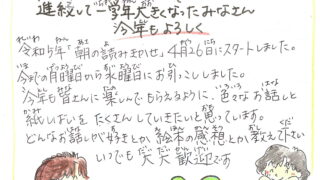 進級して一学年大きくなったみなさん
今年もよろしく
令和5年「朝の読みきかせ」4月26日にスタートしました。
今までの月曜日から水曜日にお引こししました。
今年も皆さんに楽しんでもらえるように、色々なお話しと
紙しばいをたくさんしていきたいと思っています。
どんなお話しが好きとか絵本の感想とか教えて下さい
いつでも大大歓迎です